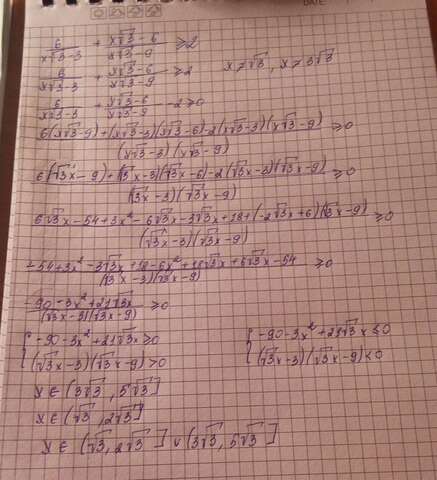 DATE
6/(x√3-3) + (x√3-6)/(x√3-9) ≥2
6/(x√3-3) + (x√3-6)/(x√3-9) ≥2 x≠√3, x≠3√3
6/(x√3-3) + (x√3-6)/(x√3-9) -2≥0
(6(x√3-9)+(x√3-3)(x√3-6)-2(x√3-3)(x√3-9))/((x√3-3)(x√3-9)) ≥0
(6(√3x-9)+(√3x-3)(√3x-6)-2(√3x-3)(√3x-9))/((√3x-3)(√3x-9)) ≥0
(6√3x-54+3x²-6√3x-3√3x+18+(-2√3x+6)(√3x-9))/((√3x-3)(√3x-9)) ≥0
(-54+3x²-3√3x+18-6x²+18√3x+6√3x-54)/((√3x-3)(√3x-9)) ≥0
(-90-3x²+21√3x)/((√3x-3)(√3x-9)) ≥0
{ -90-3x²+21√3x≥0 { -90-3x²+21√3x≤0
(√3x-3)(√3x-9)>0 (√3x-3)(√3x-9)<0
x∈(3√3, 5√3]
x∈(√3, 2√3]
x∈(√3, 2√3] ∪ (3√3, 5√3]